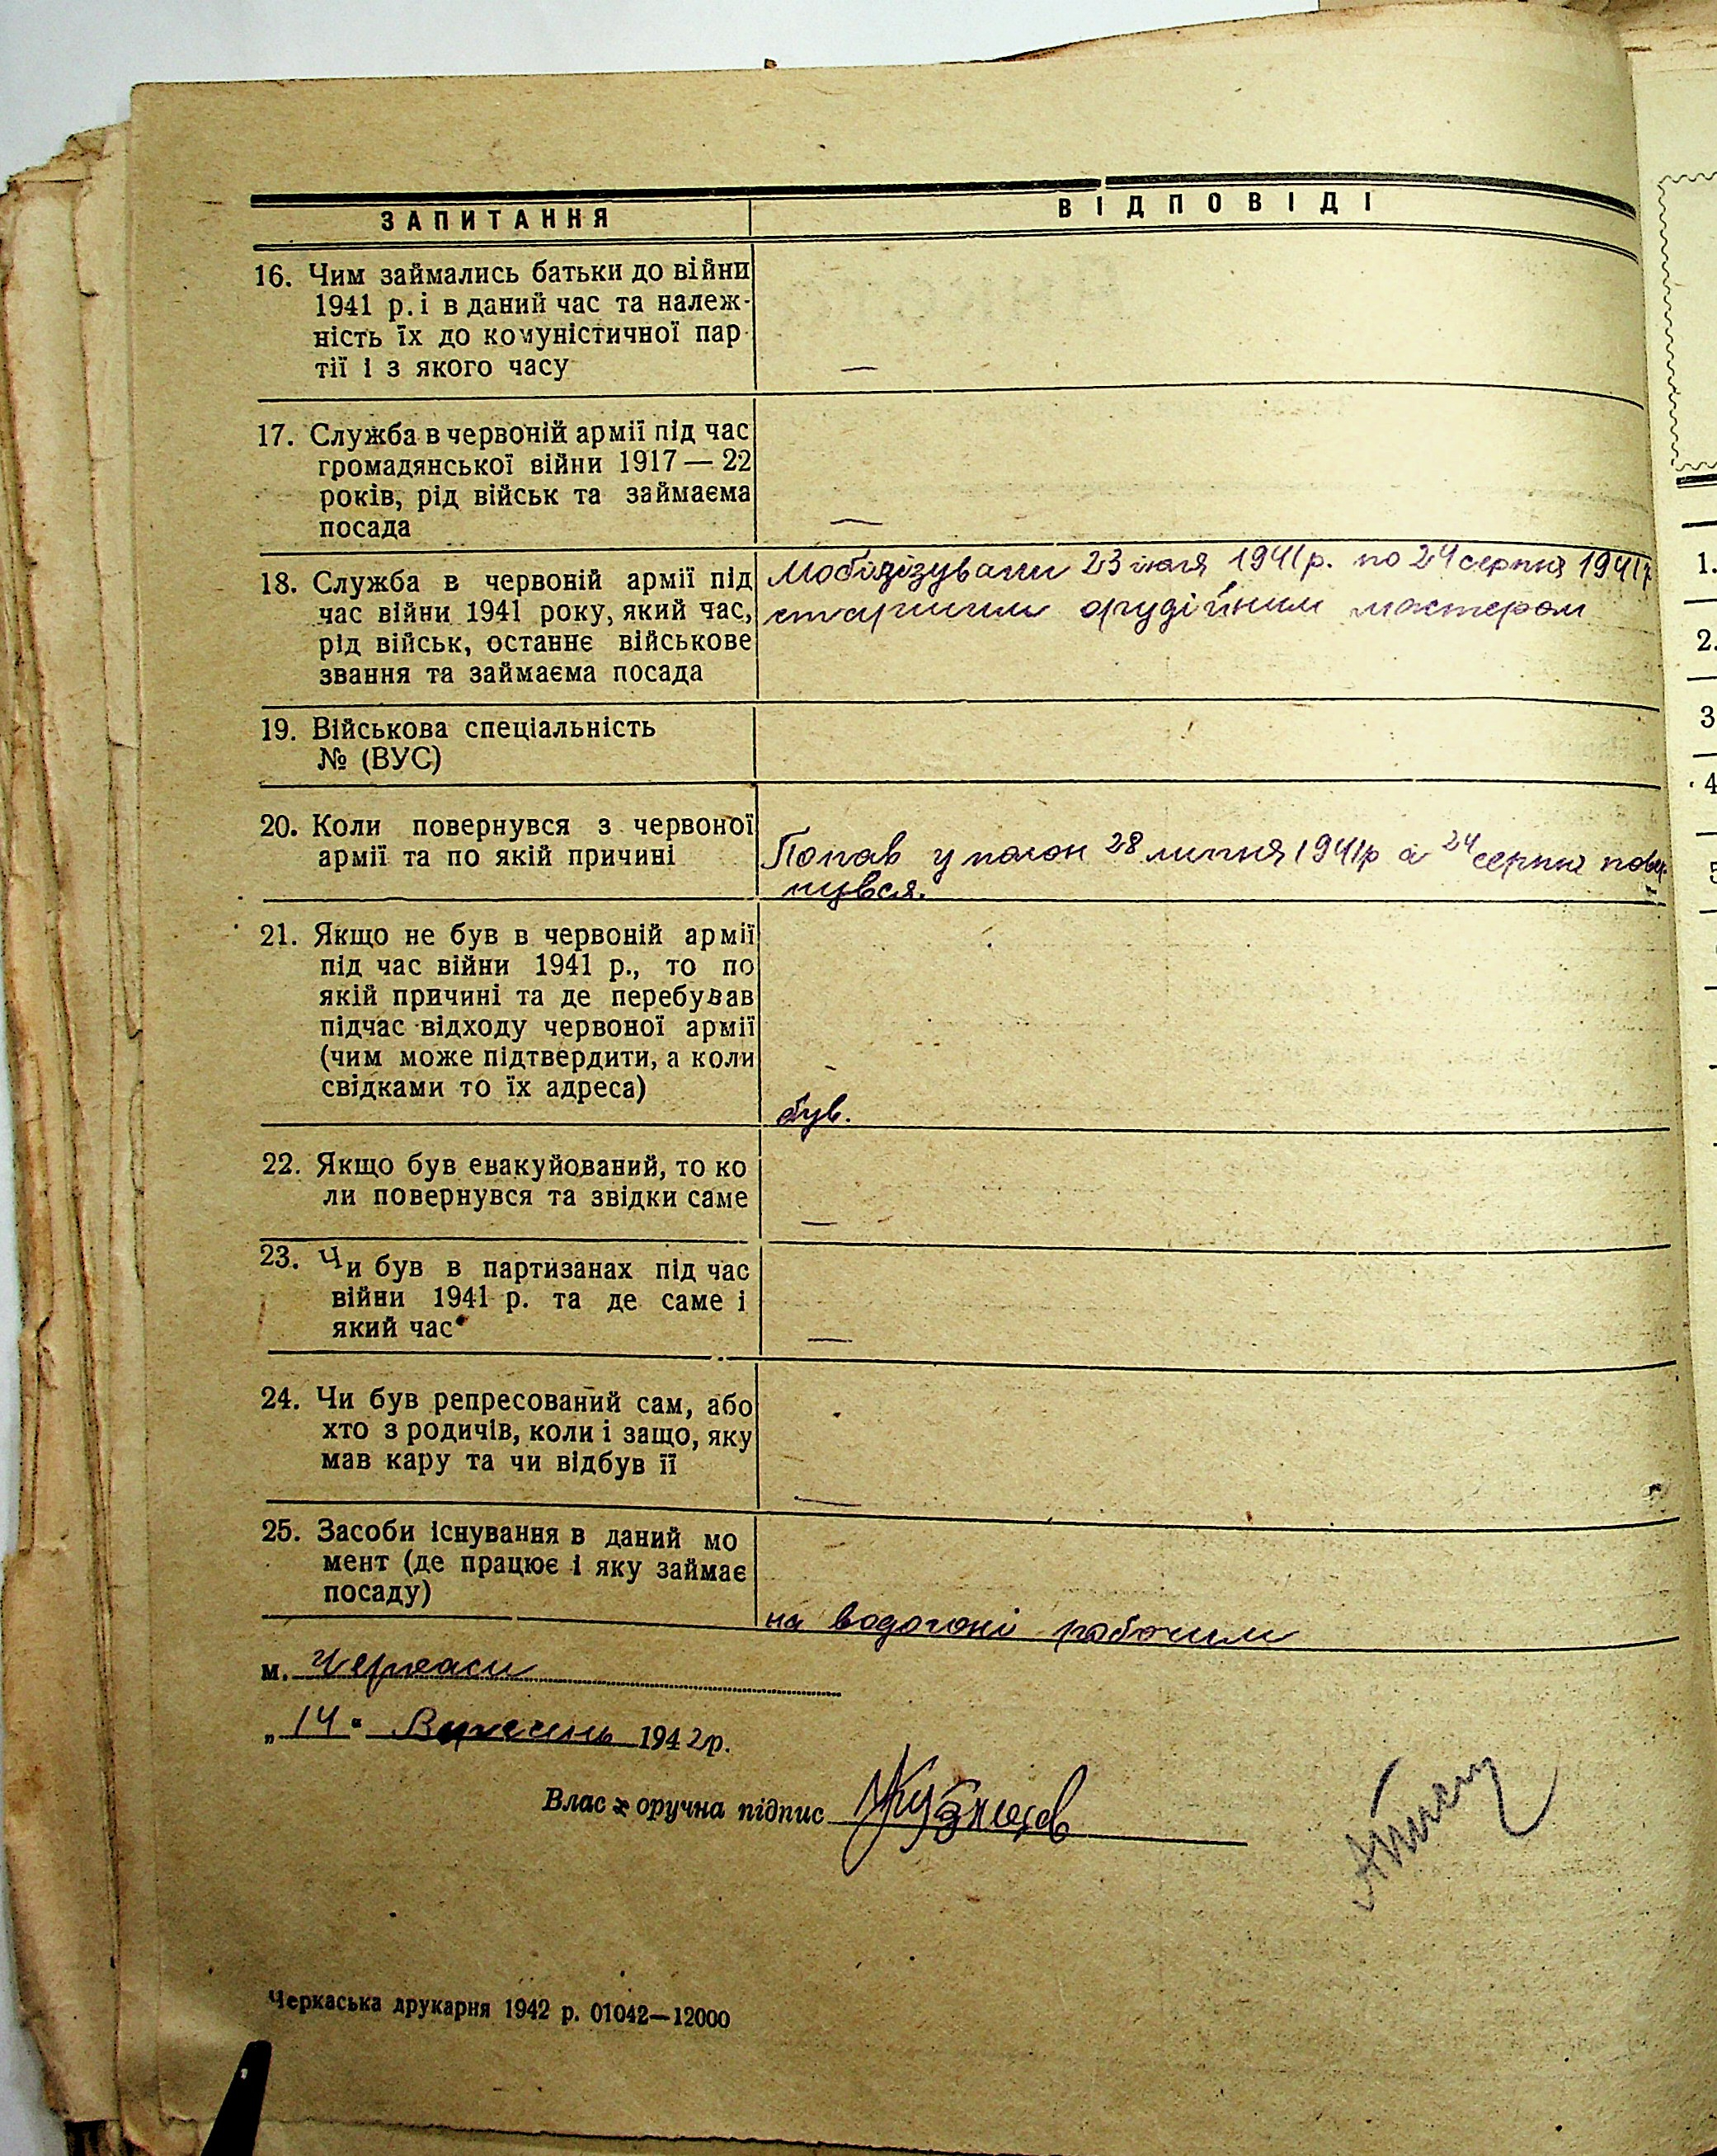 ЗАПИТАННЯ
ВІДПОВІДІ
16. Чим займались батьки до війни
1941 р. і в даний час та належ-
ність їх до комуністичної пар-
тії і з якого часу
—
17. Служба в червоній армії під час
громадянської війни 1917 — 22
років, рід військ та займаєма
посада
—
18. Служба в червоній армії під
час війни 1941 року, який час,
рід військ, останнє військове
звання та займаєма посада
Мобілізували 23 июля 1941 р. по 24 серпня 1941 р
старшим орудійним мастером
19. Військова спеціальність
№ (ВУС)
20. Коли повернувся з червоної
армії та по якій причині
Попав у полон 28 липня 1941 р а 24 серпня повер-
нувся.
21. Якщо не був в червоній армії
під час війни 1941 р., то по
якій причині та де перебував
підчас відходу червоної армії
(чим може підтвердити, а коли
свідками то їх адреса)
був.
22. Якщо був евакуйований, то ко
ли повернувся та звідки саме
—
23. Чи був в партизанах під час
війни 1941 р. та де саме і
який час
—
24. Чи був репресований сам, або
хто з родичів, коли і защо, яку
мав кару та чи відбув її
—
25. Засоби існування в даний мо
мент (де працює і яку займає
посаду)
на водогоні рабочим
м. Черкаси
„14" Вересень 1942 р.
Власноручна підпис Кузнецов
Черкаська друкарня 1942 р. 01042—12000
1.
2.
3
4
5